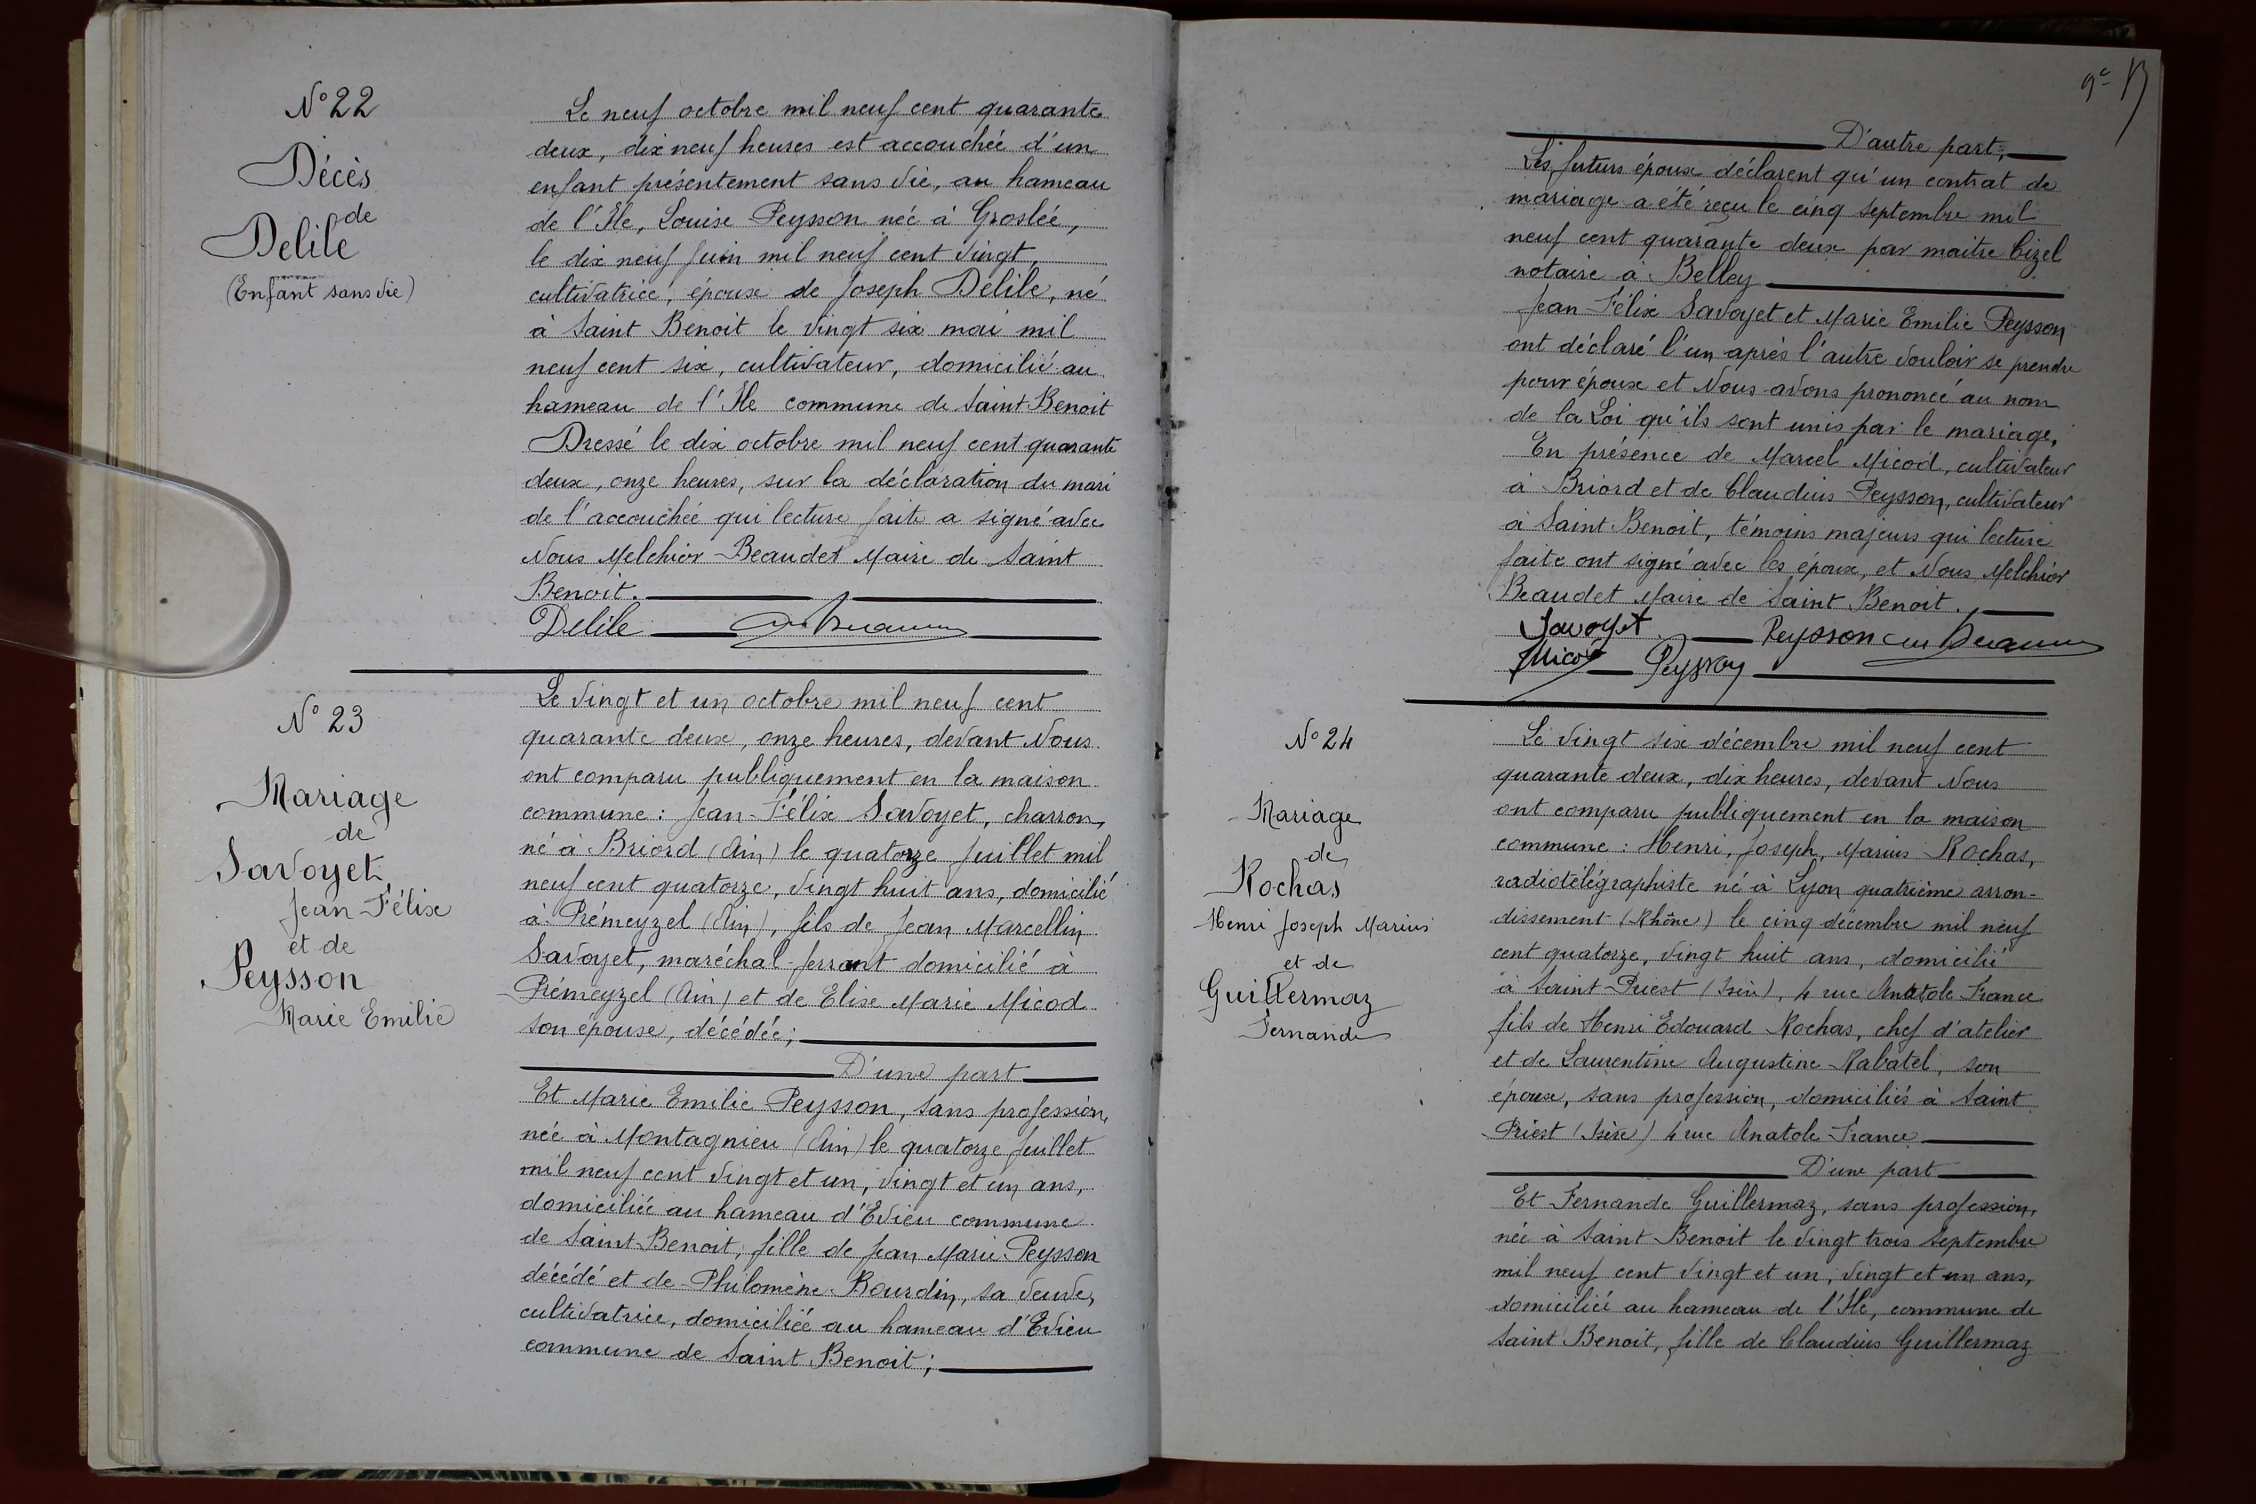 N° 22
Décès
de
Delile
(Enfant sans vie)
Le neuf octobre mil neuf cent quarante
deux, dix neuf heures est accouchée d'un
enfant présentement sans vie, au hameau
de l'Ile, Louise Peysson née à Groslée,
le dix neuf juin mil neuf cent vingt,
cultivatrice, épouse de Joseph Delile, né
à Saint Benoit le vingt six mai mil
neuf cent six, cultivateur, domicilié au
hameau de l'Ile commune de Saint-Benoit
Dressé le dix octobre mil neuf cent quarante
deux, onze heures, sur la déclaration du mari
de l'accouchée qui lecture faite a signé avec
Nous Melchior Beaudet Maire de Saint
Benoit.
Delile
N° 23
Mariage
de
Savoyet
Jean-Félix
et de
Peysson
Marie Emilie
Le vingt et un octobre mil neuf cent
quarante deux, onze heures, devant Nous
ont comparu publiquement en la maison
commune : Jean-Félix Savoyet, charron,
né à Briord (Ain) le quatorze juillet mil
neuf cent quatorze, vingt huit ans, domicilié
à Prémeyzel (Ain), fils de Jean Marcellin
Savoyet, maréchal-ferrant domicilié à
Prémeyzel (Ain) et de Elise Marie Micod
son épouse, décédée;
D'une part
Et Marie Emilie Peysson, sans profession,
née à Montagnieu (Ain) le quatorze juillet
mil neuf cent vingt et un, vingt et un ans,
domiciliée au hameau d'Evieu commune
de Saint-Benoit, fille de Jean Marie Peysson
décédé et de Philomène Bourdin, sa veuve,
cultivatrice, domiciliée au hameau d'Evieu
commune de Saint Benoit;
9e
D'autre part;
Les futurs époux déclarent qu'un contrat de
mariage a été reçu le cinq septembre mil
neuf cent quarante deux par maitre Cizel
notaire à Belley
Jean-Félix Savoyet et Marie Emilie Peysson
ont déclaré l'un après l'autre vouloir se prendre
pour époux et Nous avons prononcé au nom
de la Loi qu'ils sont unis par le mariage,
En présence de Marcel Micod, cultivateur
à Briord et de Claudius Peysson, cultivateur
à Saint Benoit, témoins majeurs qui lecture
faite ont signé avec les époux, et Nous Melchior
Beaudet Maire de Saint Benoit.
Savoyet Peysson
Micod Peysson
N° 24
Mariage
de
Rochas
Henri Joseph Marius
et de
Guillermaz
Fernande
Le vingt six décembre mil neuf cent
quarante deux, dix heures, devant Nous
ont comparu publiquement en la maison
commune : Henri, Joseph, Marius Rochas,
radiotélégraphiste né à Lyon quatrième arron-
dissement (Rhône) le cinq décembre mil neuf
cent quatorze, vingt huit ans, domicilié
à Saint-Priest (Isère), 4 rue Anatole France
fils de Henri Edouard Rochas, chef d'atelier
et de Laurentine Augustine Rabatel, son
épouse, sans profession, domiciliés à Saint
Priest (Isère) 4 rue Anatole France
D'une part
Et Fernande Guillermaz, sans profession,
née à Saint Benoit le vingt trois septembre
mil neuf cent vingt et un, vingt et un ans,
domiciliée au hameau de l'Ile, commune de
Saint Benoit, fille de Claudius Guillermaz